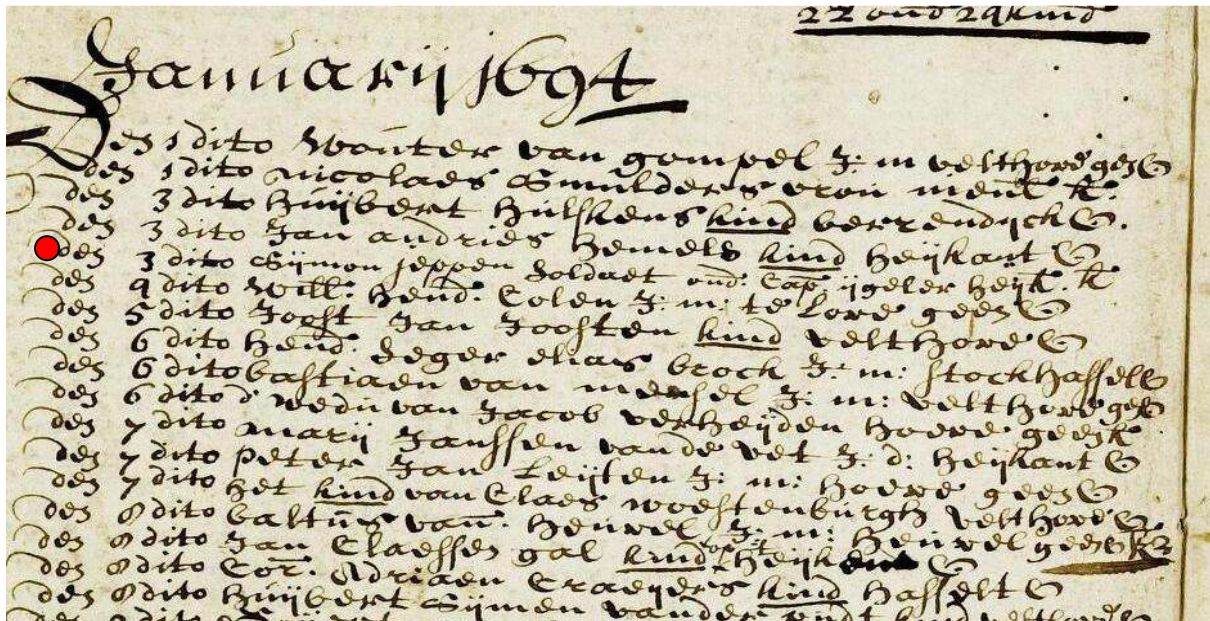 22 oud 29 kind
Januarij 1694
Den 1 dito Wouter van gompel J: m velthove geen G
den 1 dito Nicolaes Smulders vrou K.
den 3 dito Huijbert Hulskens kind berrendijck G.
den 3 dito Jan andries Hemels kind Heijkant G
den 3 dito Sijmon Jeppen Soldaet ond: Cap: ijgeler Heijk. K
den 4 dito Will: Hend: Colen J: m: te Love geen G
den 5 dito Joost Jan Joosten kind velthove G
den 6 dito Hend: Seger elias brock J: m: stockhasselt
den 6 dito bastiaen van meersel J: m: velthove geen G
den 6 dito d' wedu van Jacob verheijden Hoeve geen K
den 7 dito Marij Janssen van de vet J: d: Heijkant G
den 7 dito peter Jan Leijten J: m: Hoeve geen G
den 7 dito Het kind van Claes woestenburgh velthove G
den 8 dito baltus van: Heuvel J: m: Heuvel geen G
den 8 dito Jan Claessen gal kind op t Heijken G
den 8 dito Cor: Adriaen Craeijers kind Hasselt G
den 8 dito Huijbert Sijmen vander kind velthove G